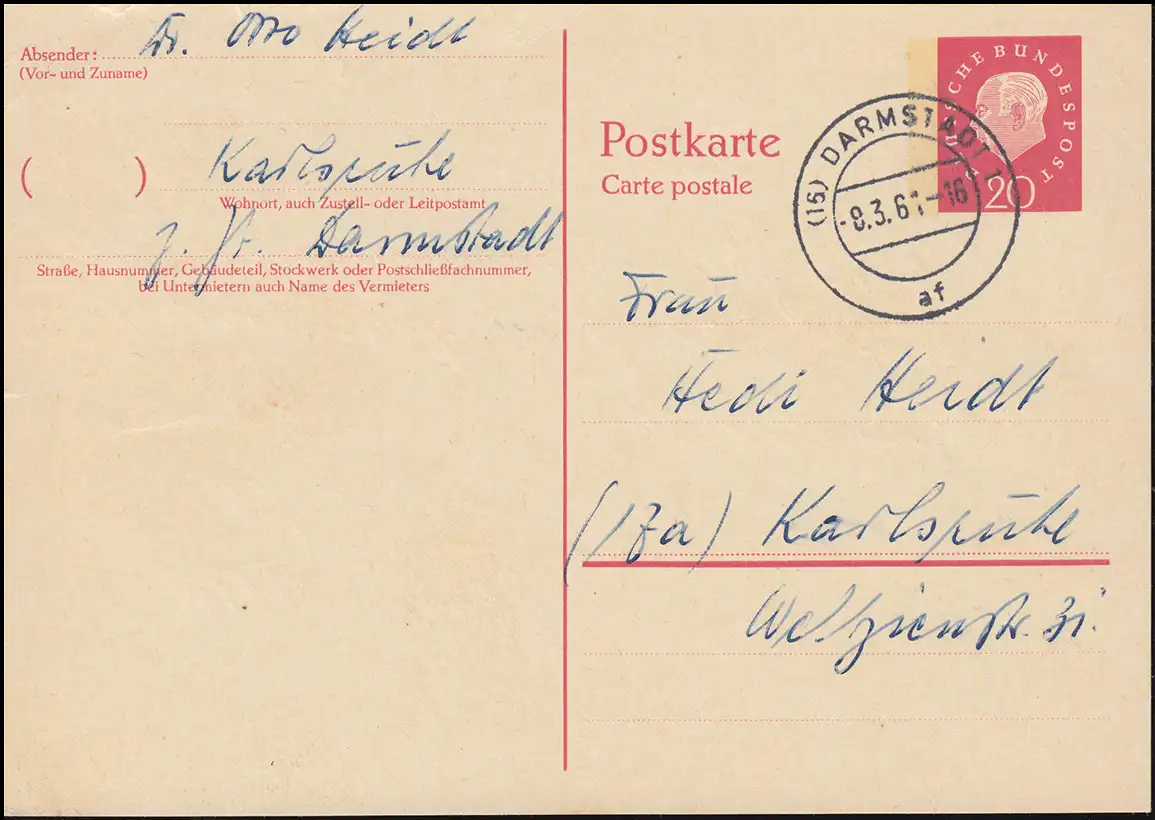 Absender: Dr. Otto Heidt
(Vor- und Zuname)
( ) Karlsruhe
Wohnort, auch Zustell- oder Leitpostamt
z. Zt. Darmstadt
Straße, Hausnummer, Gebäudeteil, Stockwerk oder Postschließfachnummer,
bei Untermietern auch Name des Vermieters
Postkarte
Carte postale
DEUTSCHE BUNDESPOST
20
(16) DARMSTADT 1
-8.3.61-16
af
Frau
Hedi Heidt
(17a) Karlsruhe
Weltzienstr. 31.